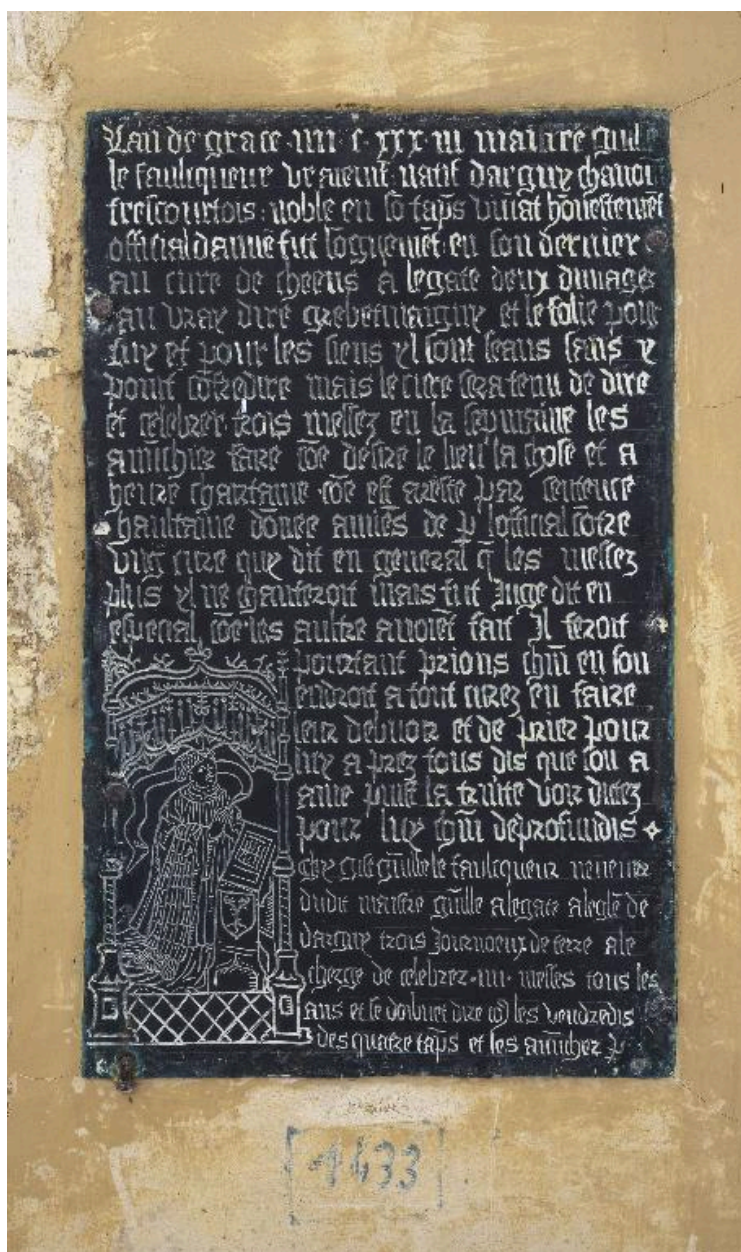 Lan de grace iiii c xxx iii maistre guille
le faulcqueur vraiemēt natif darguy chanoi
trescourtois noble en sō tāps vivāt hōnestemēt
official damiē fut lōguemēt en son dernier
au cure de cheens a legate deux
au vray dire et le folie pour
luy et pour les siens yl sont leans sans y
point cōtredire mais le cure sera tenu de dire
et celebrer trois messez en la sepmaine les
anūchier faire cōe desire le lieu la chose et a
heure chartaine cōe est areste par sentence
haultaine dōnee amiēs de p lofficial cōtre
vng cure quy dit en general q̄ les messez
plus yl ne chanteroit mais fut Juge dit en
especial cōe les aultre avoiēt fait Il feroit
pourtant prions chūn en son
endroit a tout curez en faire
leur debuoir et de prier pour
luy a prez tous dis que son a
ame puist la trinite voir dictez
pour luy chūn deprofundis
Chy gist guille le faulcqueur nepueur
dudit maistre guille a legate a legle de
darguy trois Journoeux de terre a le
cherge de celebrer iiii messes tous les
ans et se doibuēt dire les vendredis
des quatre tāps et les anūcher p
1433